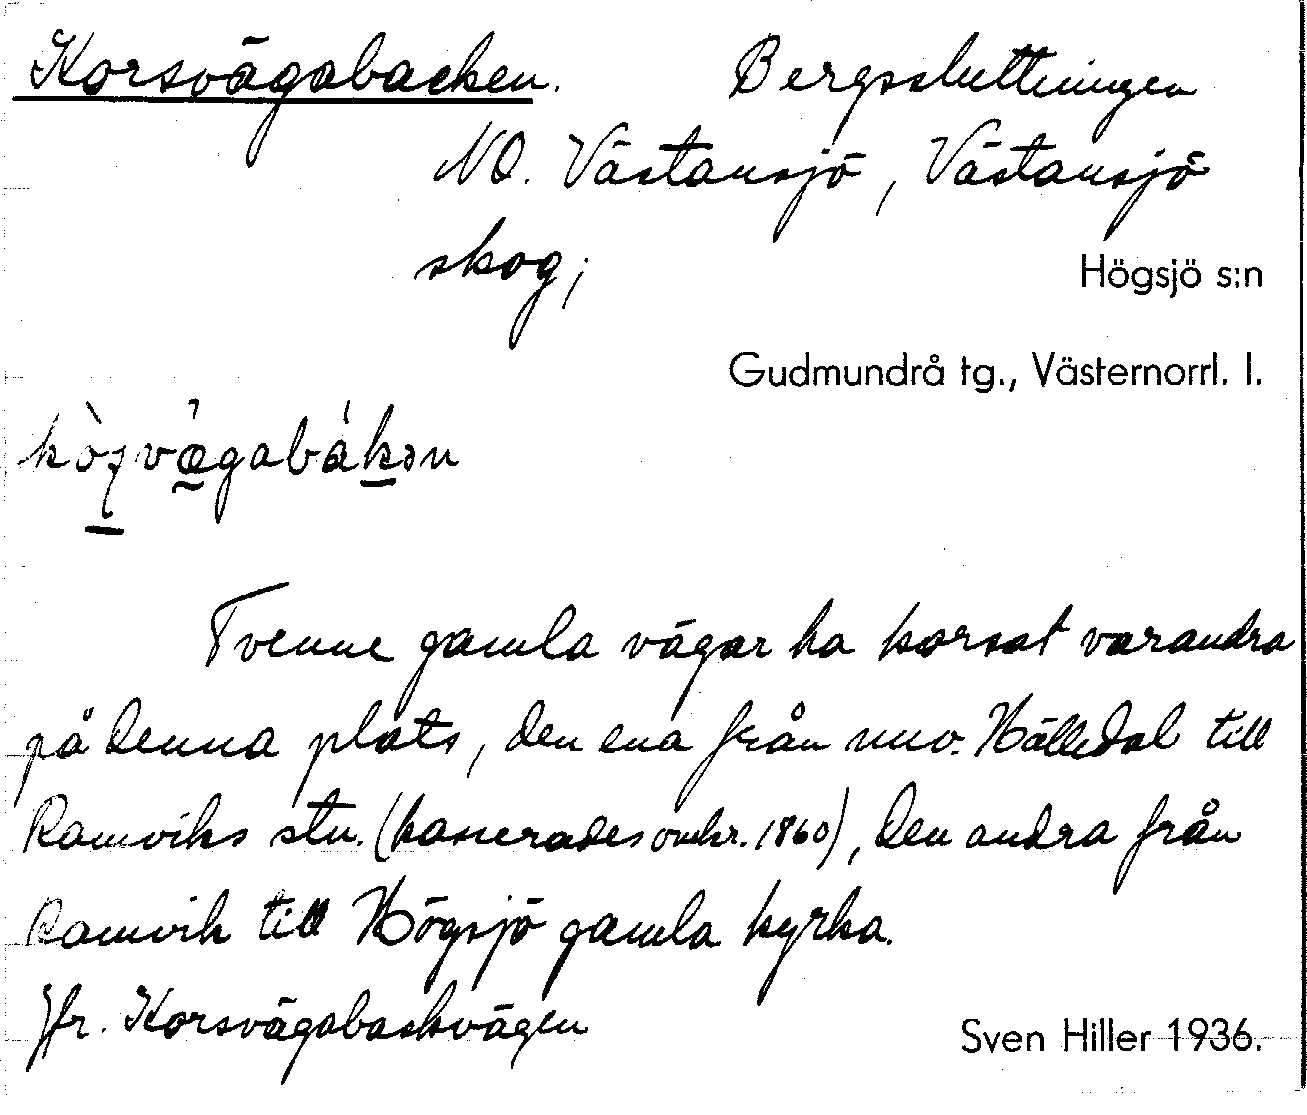 Korsvägabacken. Bergssluttningen
NO. Västansjö, Västansjö
skog;
Högsjö s:n
Gudmundrå tg., Västernorrl. l.
Tvenne gamla vägar ha korsat varandra
på denna plats, den ena från nuv. Hälledal till
Ramviks stn. (kasserades omkr. 1860), den andra från
Ramvik till Högsjö gamla kyrka.
Jfr. Korsvägabackvägen
Sven Hiller 1936.